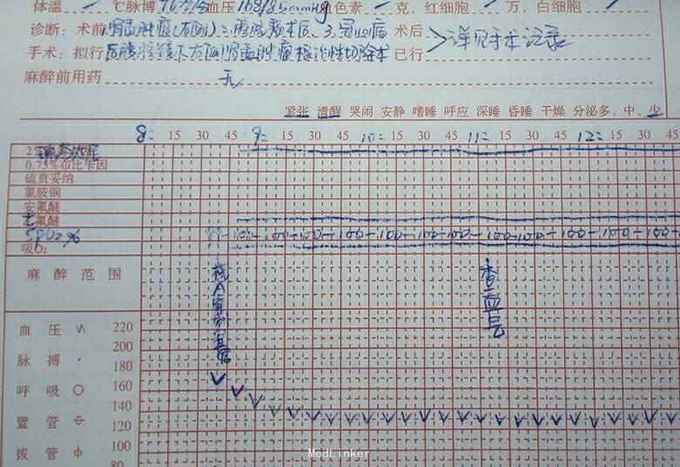 体温 ℃脉搏76次/分血压168/85mmHg色素 克、红细胞 万、白细胞
诊断:术前 肾盂肿瘤(右侧) 2. 术后、3. 冠心病 术后 详见手术记录
手术:拟行 后腹腔镜下右侧肾盂肿瘤根治性切除术 已行
麻醉前用药 无
紧张 清醒 哭闹 安静 嗜睡 呼应 深睡 昏睡 干燥 分泌多、中、少
8= 15 30 45 9= 15 30 45 10= 15 30 45 11= 15 30 45 12= 15 30 45
0.75%布比卡因
硫喷妥纳
氯胺铜
安氟醚
七氟醚
SPO2% 99 100-100-100-100-100-100-100-100-100-100-100-100-100-100-100
吸O₂
麻醉范围
查血气
血压 220
200
脉搏 · 180
呼吸 ○ 160
140
置管 120
拔管 100
80
MedLinker